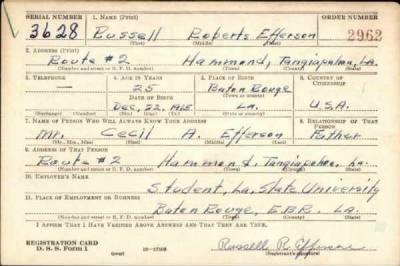 SERIAL NUMBER 1. NAME (Print) ORDER NUMBER
3628 Russell Roberts Efferson 2962
(First) (Middle) (Last)
2. ADDRESS (Print)
Route #2 Hammond, Tangipahoa, La.
(Number and street or R. F. D. number) (Town) (County) (State)
3. TELEPHONE 4. AGE IN YEARS 5. PLACE OF BIRTH 6. COUNTRY OF CITIZENSHIP
— 25 Baton Rouge
(Town or county)
DATE OF BIRTH
Dec. 22, 1915 La. U.S.A.
(Exchange) (Number) (Mo.) (Day) (Yr.) (State or country)
7. NAME OF PERSON WHO WILL ALWAYS KNOW YOUR ADDRESS 8. RELATIONSHIP OF THAT PERSON
Mr. Cecil A. Efferson Father
(Mr., Mrs., Miss) (First) (Middle) (Last)
9. ADDRESS OF THAT PERSON
Route #2 Hammond, Tangipahoa, La.
(Number and street or R. F. D. number) (Town) (County) (State)
10. EMPLOYER'S NAME
Student, La. State University
11. PLACE OF EMPLOYMENT OR BUSINESS
Baton Rouge, E.B.R. La.
(Number and street or R. F. D. number) (Town) (County) (State)
I AFFIRM THAT I HAVE VERIFIED ABOVE ANSWERS AND THAT THEY ARE TRUE.
REGISTRATION CARD
D. S. S. Form 1 (over) 16—17105 Russell R. Efferson
(Registrant's signature)